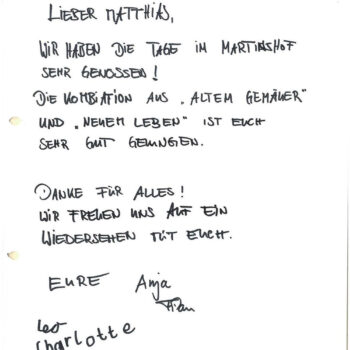 LIEBER MATTHIAS,
WIR HABEN DIE TAGE IM MARTINSHOF
SEHR GENOSSEN!
DIE KOMBIATION AUS „ALTEM GEMÄUER"
UND „NEUEM LEBEN" IST EUCH
SEHR GUT GELUNGEN.
DANKE FÜR ALLES!
WIR FREUEN UNS AUF EIN
WIEDERSEHEN MIT EUCH.
EURE Anja
Leo
Charlotte